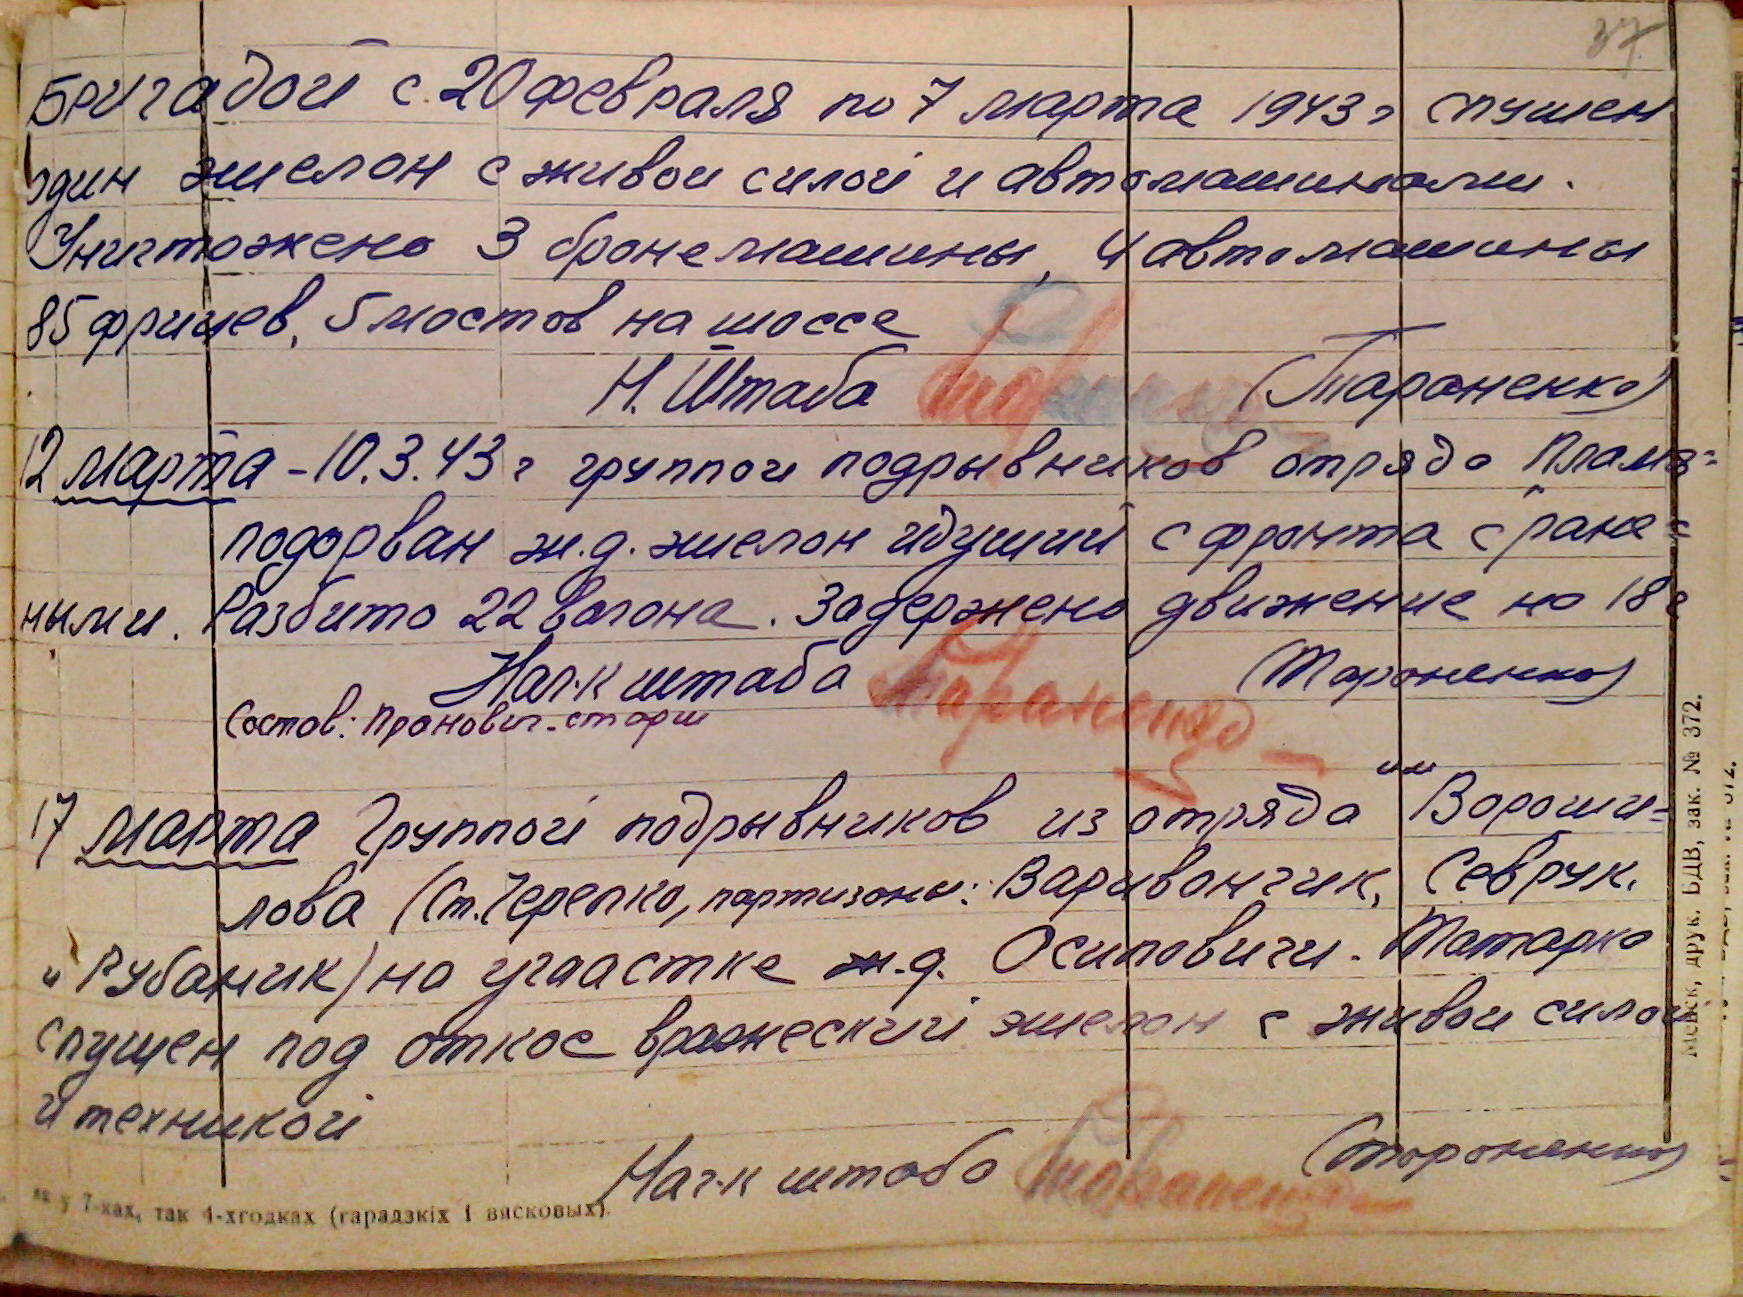 37.
Бригадой с 20 февраля по 7 марта 1943 г спущен
один эшелон с живой силой и автомашинами.
Уничтожено 3 бронемашины, 4 автомашины
85 фрицев, 5 мостов на шоссе
Н. Штаба Тараненко (Тараненко)
12 марта - 10.3.43 г группой подрывников отряда Пламя=
подорван ж.д. эшелон идущий с фронта с ране=
ными. Разбито 22 вагона. Задержено движение на 18 г
Нач-к штаба Тараненко (Тараненко)
Состов: Пранович-старш
17 марта Группой подрывников из отряда им Вороши=
лова (Ст. Черепко, партизаны: Варивончик, Севрук.
и Рубаник) на учаастке ж.д. Осиповичи - Татарка
спущен под откос вражеский эшелон с живой силой
и техникой
Нач-к штаба Тараненко (Тараненко)
як у 7-ках, так 4-хгодках (гарадзкіх і вясковых).
Менск, друк. БДВ, зак. № 372.